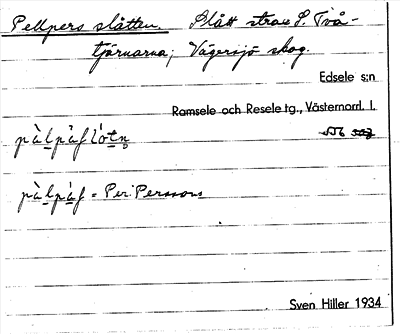 Pellpers slåtten. Slått strax S. Två-
tjärnarna; Vägersjö skog.
Edsele s:n
Ramsele och Resele tg., Västernorrl. l.
pàlpàf = Per Persson
Sven Hiller 1934